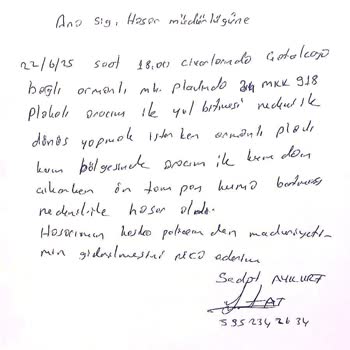 Ana sig. Hasar müdürlüğüne
22/6/25 saat 18.00 civarlarında Çatalca
bağlı ormanlı mh. plajında 34 MKK 918
Plakalı aracım ile yol bitmesi nedeni ile
dönüş yapmak isterken ormanlı plajı
kum bölgesinde aracım ile kumdan
çıkarken ön tampon kuma batması
nedeni ile hasar oldu.
Hasarımın kasko poliçem den mağduriyeti-
min giderilmesini rica ederim
Sedat AYKURT
5952342634